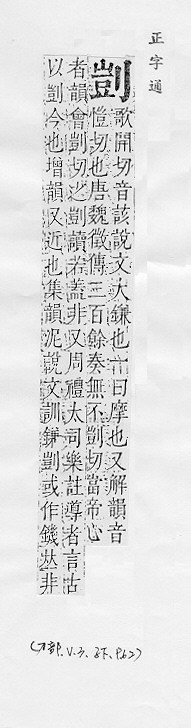 正字通
剴
歌開切音該說文大鎌也一曰摩也又解韻音
愷切也唐魏徵傳三百餘奏無不剴切當帝心
者韻會剴切之剴讀若蓋非又周禮太司樂註導者言古
以剴今也增韻又近也集韻泥說文訓鎌剴或作鐖𠀤非
(刀部、V.子、子下、P.62)